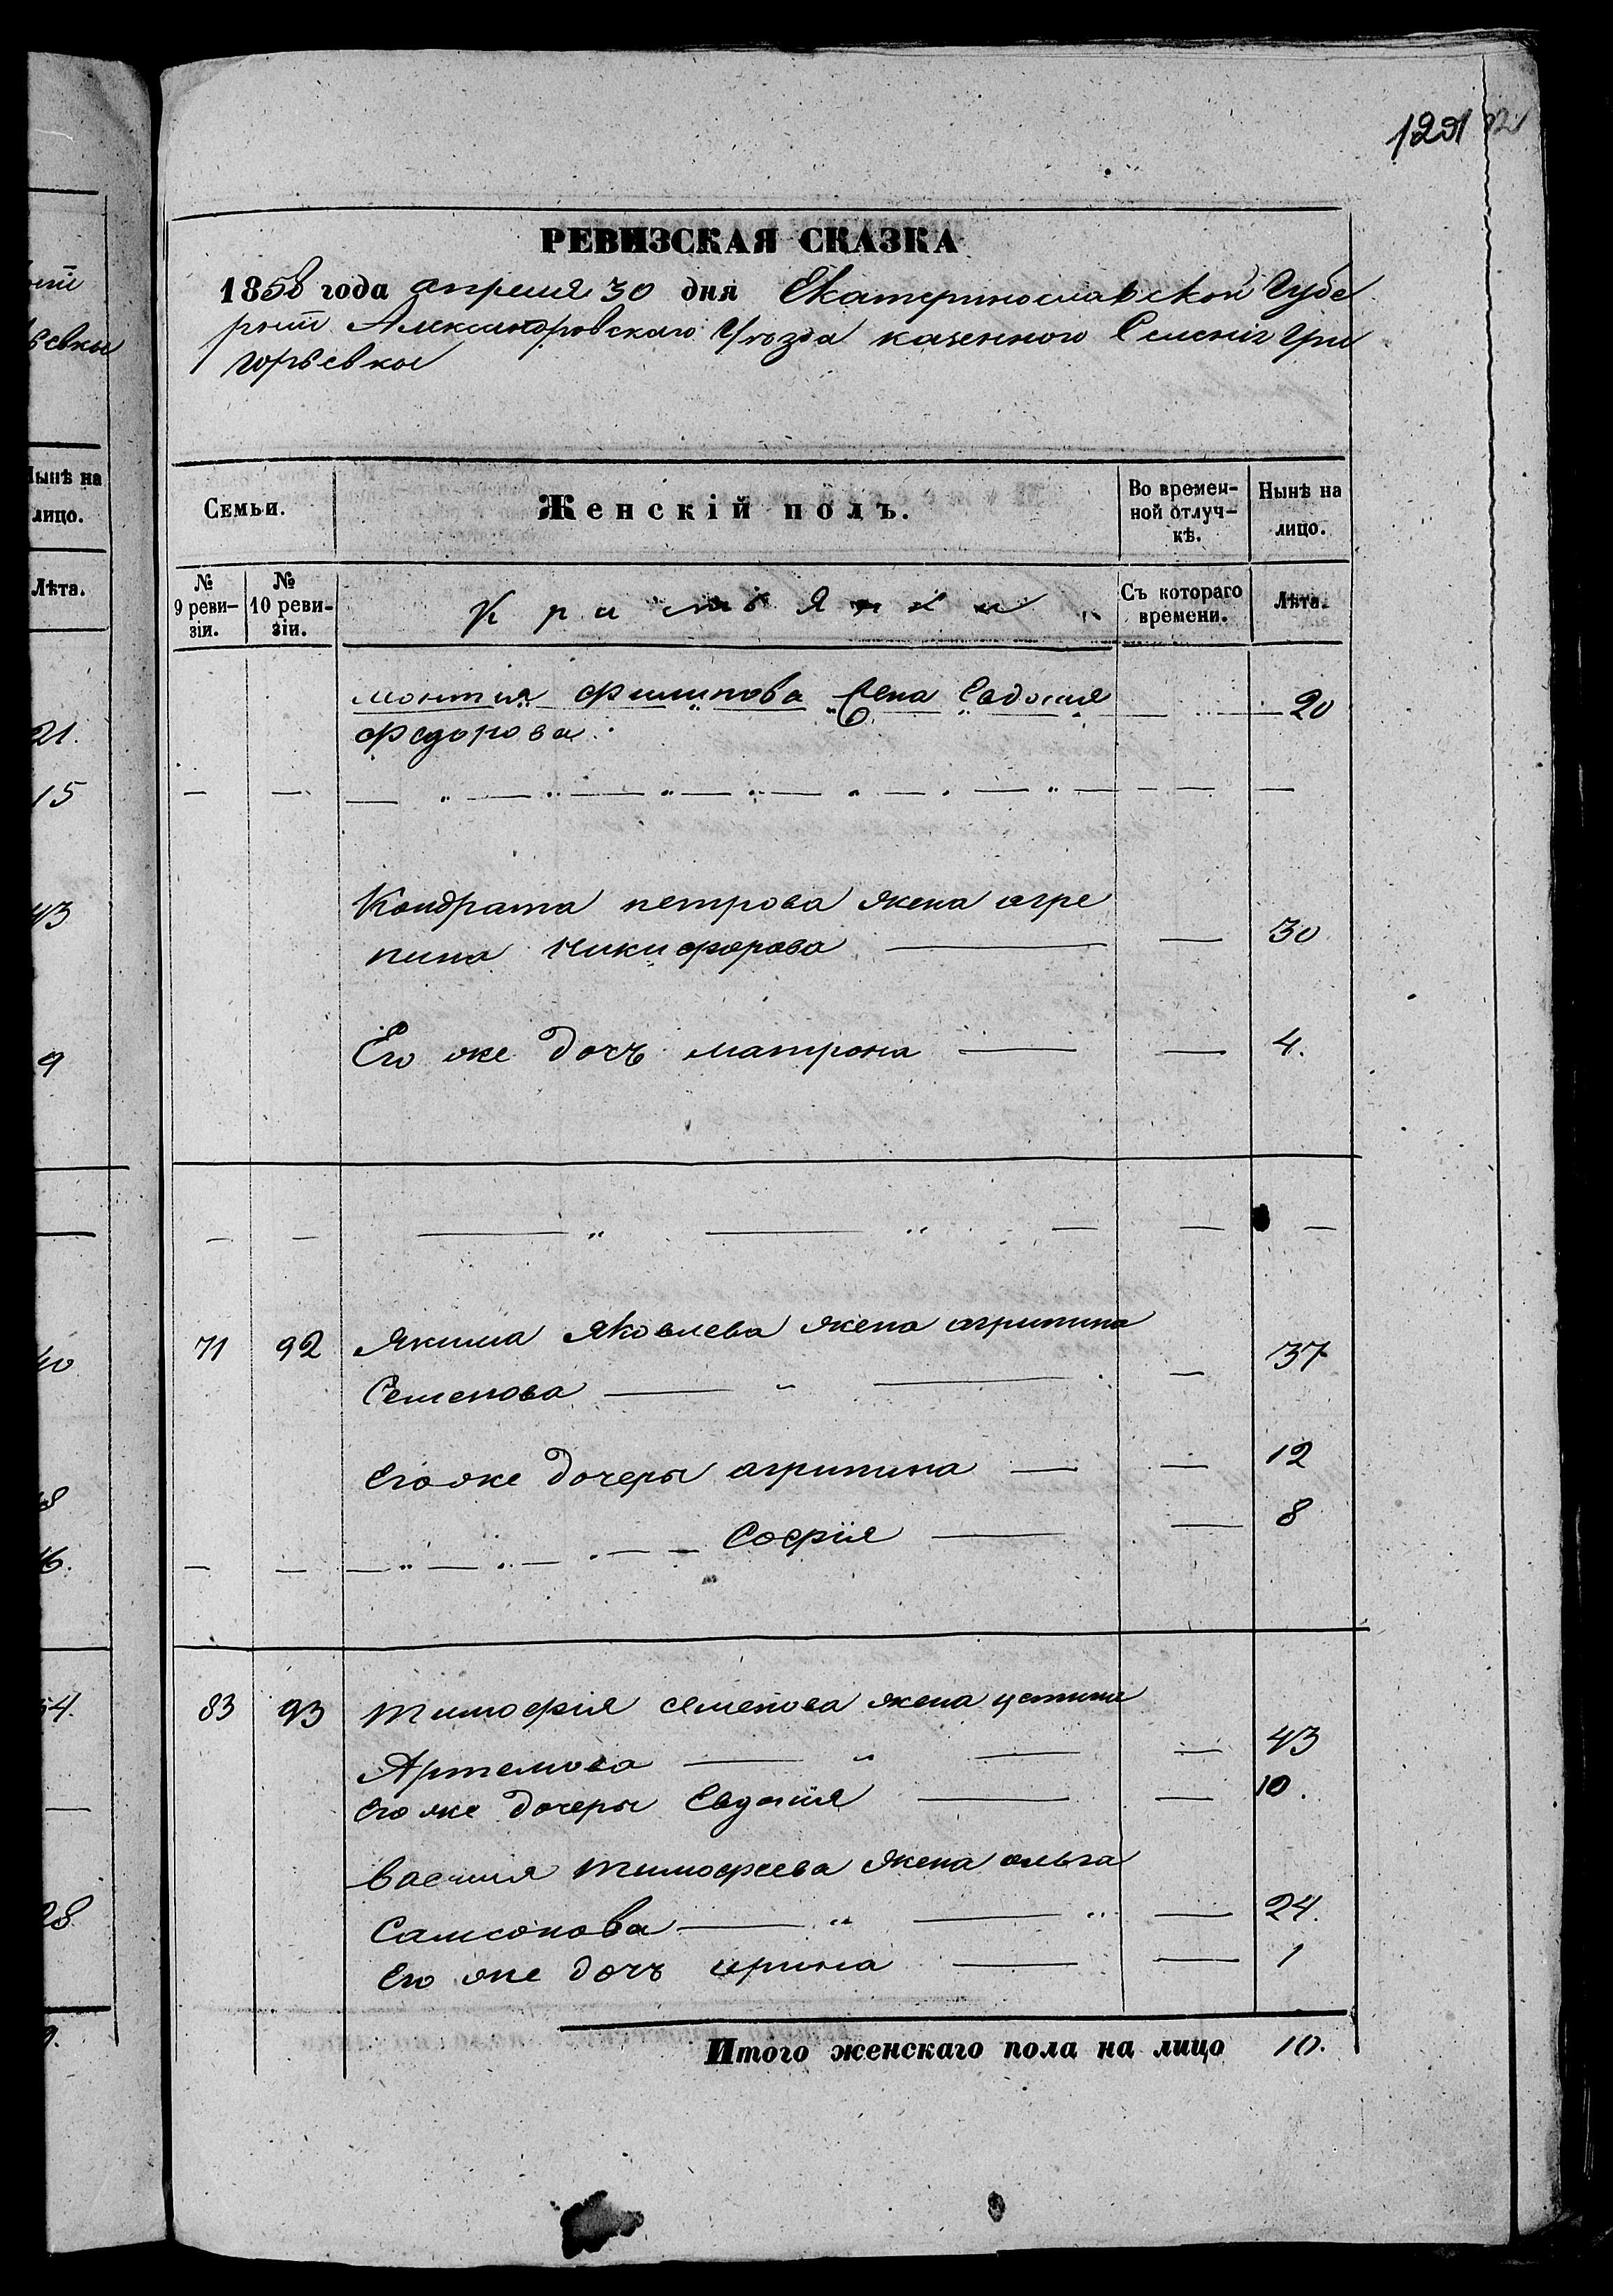 1291
РЕВИЗСКАЯ СКАЗКА
1858 года апреля 30 дня Екатеринославской Губе
рніи Александровскаго Уѣзда казенного Селенія Гри
горьевки
Семьи.
Женскій полъ.
Во времен-
ной отлуч-
кѣ.
Нынѣ на
лицо.
№
9 реви-
зіи.
№
10 реви-
зіи.
Съ котораго
времени.
Лѣта.
Филипова Жена Евдокия 20
Федорова
Кондрата петрова жена агре
пина Никифорова 30
Его же дочъ матрона 4.
71 92 Якима Яковлева жена агрипина
Семенова 37
Его же дочеры агрипина 12
Софія 8
83 93 Тимофія семенова жена устина
Артемова 43
Его же дочеры Евдокія 10.
Василия Тимофеева жена ольга
Самсонова 24.
Его же дочъ ирина 1
Итого женскаго пола на лицо 10.
Нынѣ на
лицо.
Лѣта.
21.
15
43
9
40
16.
54.
28